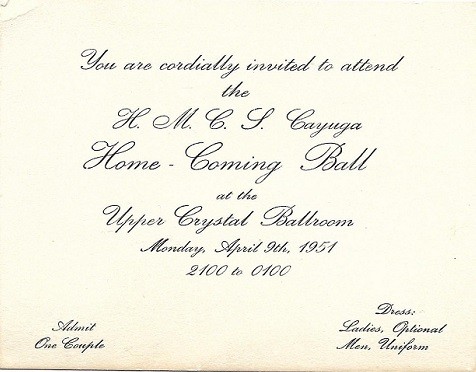 You are cordially invited to attend
the
H. M. C. S. Cayuga
Home - Coming Ball
at the
Upper Crystal Ballroom
Monday, April 9th, 1951
2100 to 0100
Admit
One Couple
Dress:
Ladies, Optional
Men, Uniform